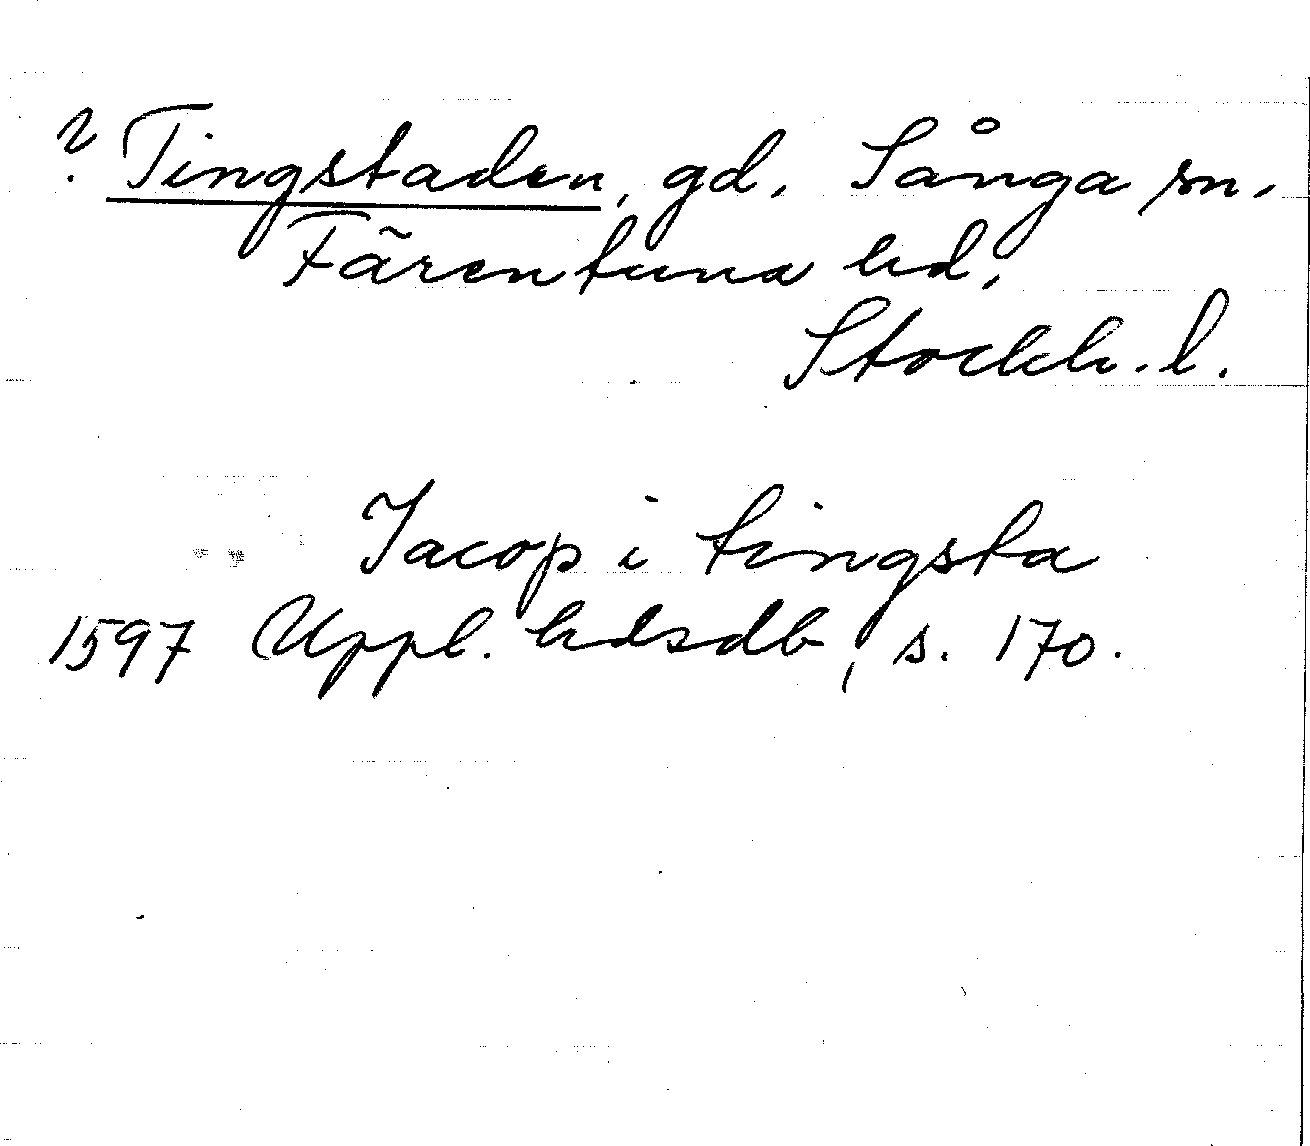 ? Tingstaden, gd, Sånga sn,
Färentuna hd,
Stockh. l.
Jacop i tingsta
1597 Uppl. hdsdb, s. 170.